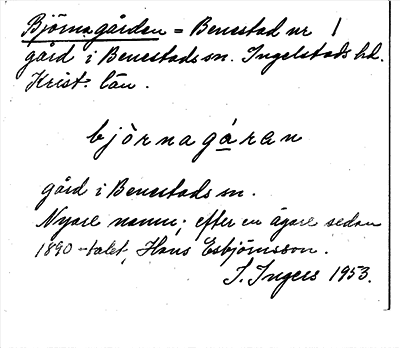 Björnagården = Benestad nr 1
gård i Benestads sn. Ingelstads hd.
Krist. län.
bjö̀rnagáran
gård i Benestads sn.
Nyare namn; efter en ägare sedan
1890-talet, Hans Esbjörnsson.
I. Ingers 1953.